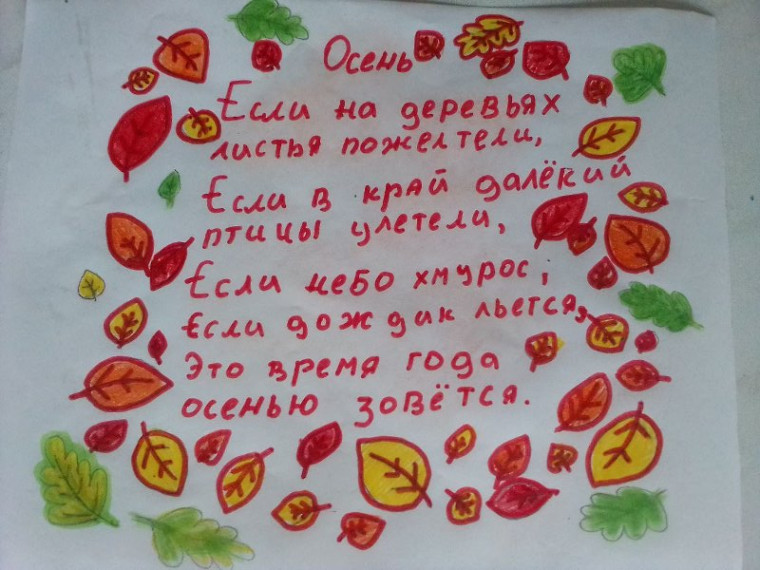 Осень
Если на деревьях
листья пожелтели,
Если в край далёкий
птицы улетели,
Если небо хмурос,
Если дождик льется,
Это время года
осенью зовётся.